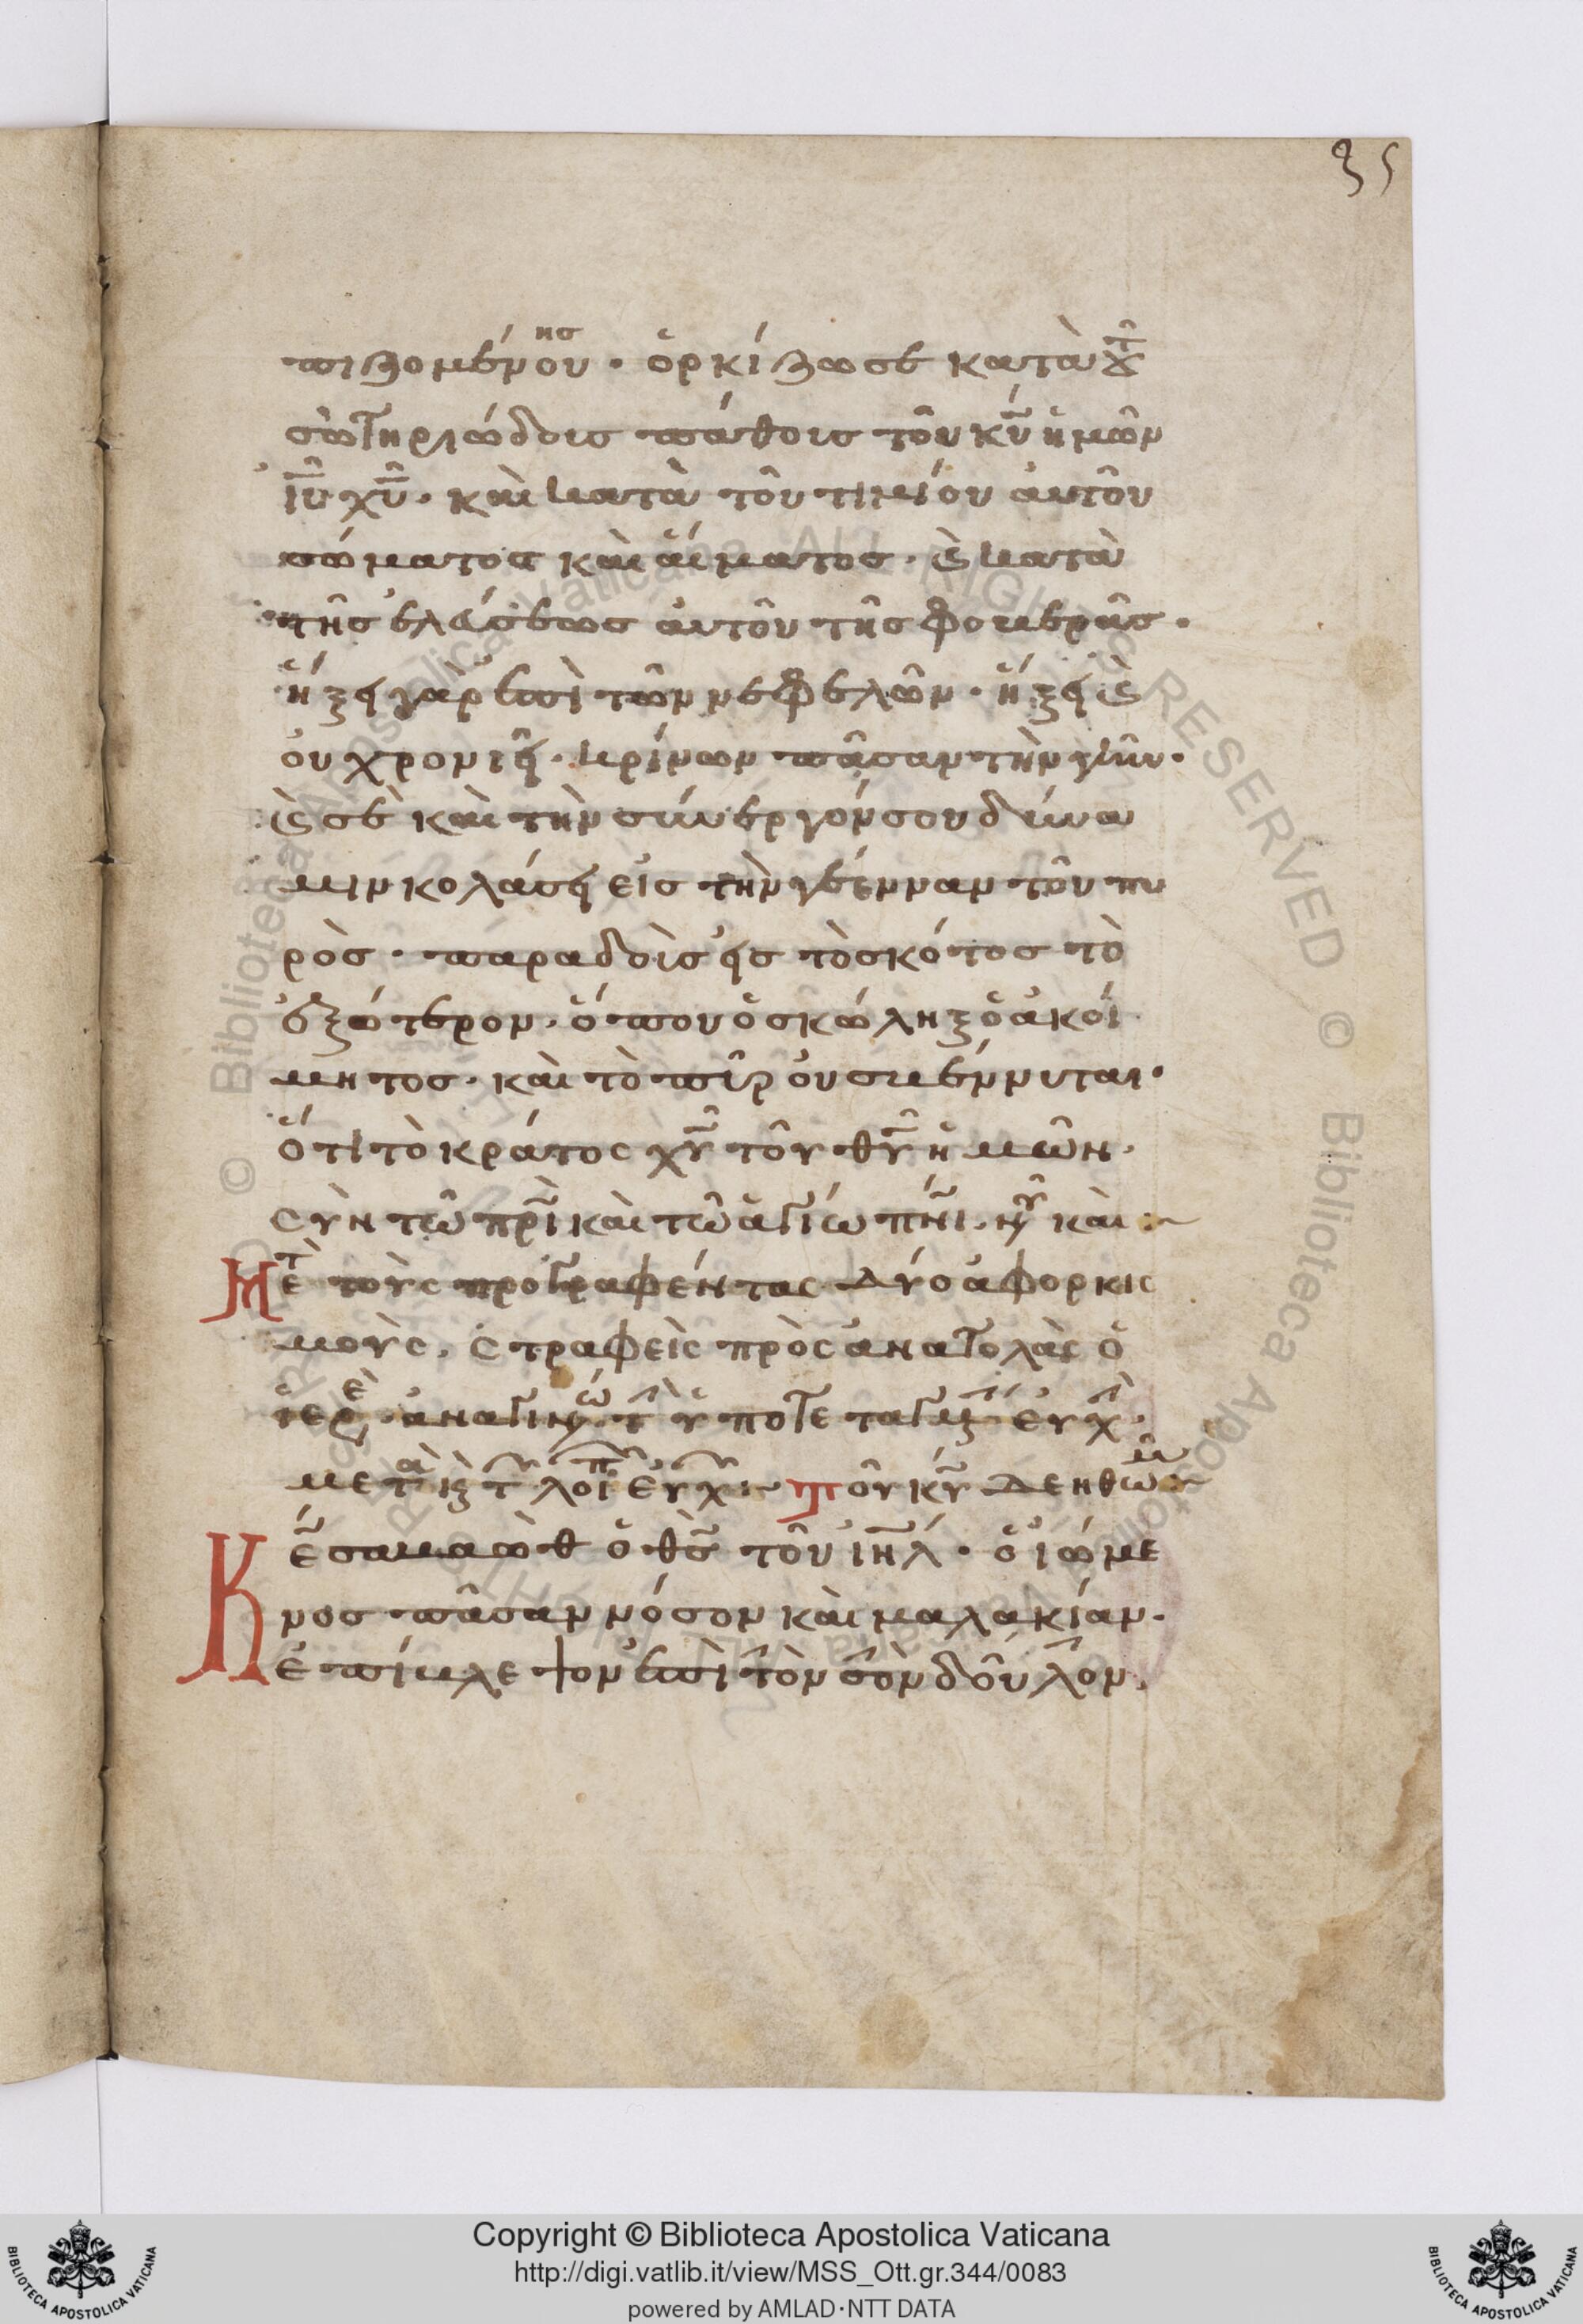 35
πιζομένου ης · ὁρκίζω σε κατὰ τοῖς
σωτηριώδοις πάθοις τοῦ κῦ ἡμῶν
ἰῦ χῦ · καὶ κατὰ τοῦ τιμίου αὐτοῦ
σώματος καὶ αἵματος · καὶ κατὰ
τῆς ἐλεύσεως αὐτοῦ τῆς φοβερᾶς ·
ἥξει γὰρ ἐπὶ τῶν νεφελῶν · ἥξει καὶ
οὐ χρονιεῖ · κρίνων πᾶσαν τὴν γῆν ·
καὶ σὲ καὶ τὴν συνεργόν σου δύνα
μιν κολάσει εἰς τὴν γέενναν τοῦ πυ
ρὸς · παραδοὶς εἰς τὸ σκότος τὸ
ἐξώτερον · ὅπου ὁ σκώληξ ὁ ἀκοί
μητος · καὶ τὸ πῦρ οὐ σβέννυται ·
ὅτι τὸ κράτος χῦ τοῦ θῦ ἡμῶν ·
σὺν τῶ πρὶ καὶ τῶ ἁγίω πνι · νῦ καὶ
Μετ τοὺς προγραφέντας δύο ἀφορκισ
μοὺς · στραφεὶς πρὸς ἀνατολὰς ὁ
ἱερε · ἀναγινω τ ὑποτεταγμ εὐχ ·
μετὰ κ τ λοιπ εὐχ Τοῦ κῦ δεηθῶμ
Κε σαβαὼθ ὁ θς τοῦ ἰηλ · ὁ ἰώμε
νος πᾶσαν νόσον καὶ μαλακίαν ·
ἐπίβλεψον ἐπὶ τὸν σὸν δοῦλον ·
Copyright © Biblioteca Apostolica Vaticana
http://digi.vatlib.it/view/MSS_Ott.gr.344/0083
powered by AMLAD·NTT DATA